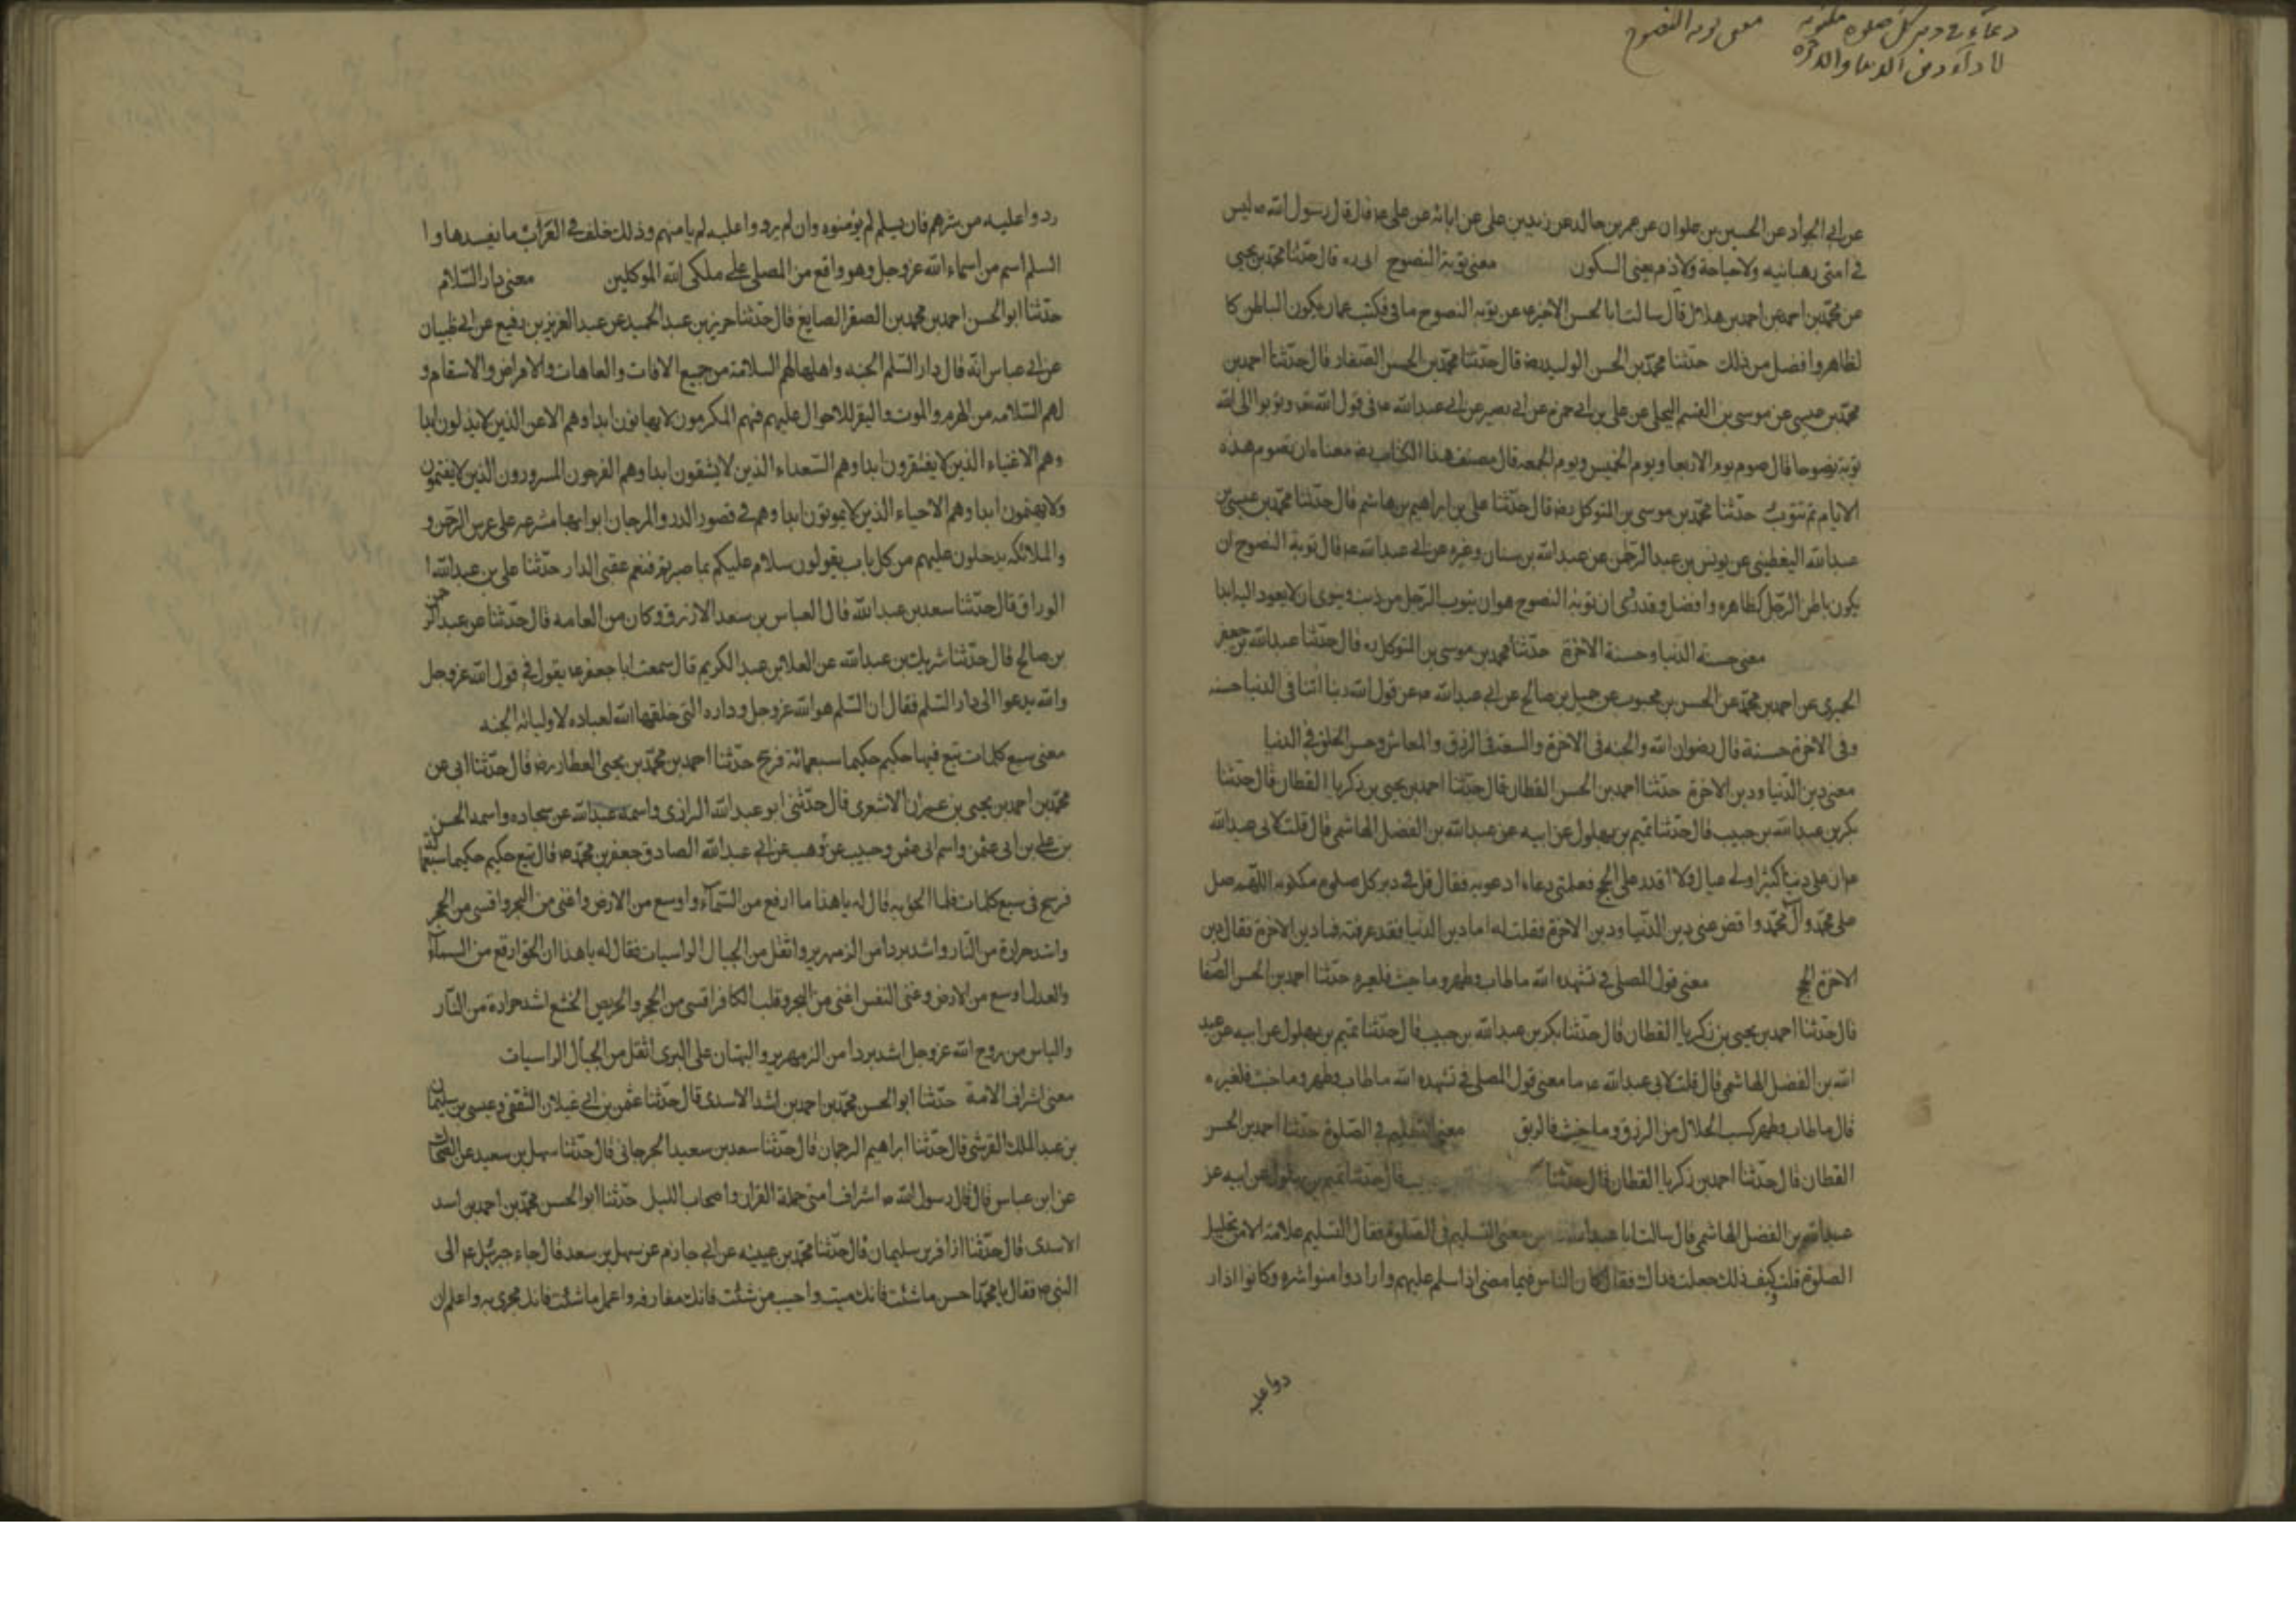 دعاء في دبر كل صلوة مكتوبة
لاداء دين الدنيا والاخرة
معنى توبة النصوح
عن ابى الجواد عن الحسين بن علوان عن عمر بن خالد عن زيد بن على عن ابائه عن على ع قال قال رسول الله ص ليس
في امتى رهبانيه ولا سياحة ولا ذم يعنى السكون معنى توبة النصوح ابى ره قال حدثنا محمد بن يحيى
عن محمد بن احمد عن احمد بن هلال قال سالت ابا الحسن الاخير ع عن توبة النصوح ما هى فكتب ع ان يكون الباطن كا
لظاهر وافضل من ذلك حدثنا محمد بن الحسن الوليد رض قال حدثنا محمد بن الحسن الصفار قال حدثنا احمد بن
محمد بن عيسى عن موسى بن القسم البجلى عن على بن ابى حمزه عن ابى بصير عن ابى عبد الله ع فى قول الله تع وتوبوا الى الله
توبة نصوحا قال صوم يوم الاربعا ويوم الخميس ويوم الجمعه قال مصنف هذا الكتاب رض معناه ان تصوم هذه
الايام ثم تتوب حدثنا محمد بن موسى بن المتوكل رض قال حدثنا على بن ابراهيم بن هاشم قال حدثنا محمد بن عيسى بن
عبد الله اليقطينى عن يونس بن عبد الرحمن عن عبد الله بن سنان وغيره عن ابى عبد الله ع قال توبة النصوح ان
يكون باطن الرجل كظاهره وافضل وقد روى ان توبة النصوح هو ان يتوب الرجل من ذنب وينوى ان لا يعود اليه ابدا
معنى حسنة الدنيا وحسنة الاخرة حدثنا محمد بن موسى بن المتوكل ره قال حدثنا عبد الله بن جعفر
الحميرى عن احمد بن محمد عن الحسن بن محبوب عن جميل بن صالح عن ابى عبد الله ع عن قول الله ربنا اتنا فى الدنيا حسنه
وفى الاخرة حسنة قال رضوان الله والجنه فى الاخرة والسعة فى الرزق والمعاش وحسن الخلق فى الدنيا
معنى دين الدنيا ودين الاخرة حدثنا احمد بن الحسن القطان قال حدثنا احمد بن يحيى بن زكريا القطان قال حدثنا
بكر بن عبد الله بن حبيب قال حدثنا تميم بن بهلول عن ابيه عن عبد الله بن الفضل الهاشمى قال قلت لابى عبد الله
ع ان على دينا كثيرا ولى عيال ولا اقدر على الحج فعلمنى دعاء ادعو به فقال قل فى دبر كل صلوة مكتوبه اللهم صل
على محمد وآل محمد واقض عنى دين الدنيا ودين الاخرة فقلت له اما دين الدنيا فقد عرفته فما دين الاخرة فقال دين
الاخرة الحج معنى قول المصلى فى تشهده الله ماطاب وطهر وما خبث فلغيره حدثنا احمد بن الحسن القطا
قال حدثنا احمد بن يحيى بن زكريا القطان قال حدثنا بكر بن عبد الله بن حبيب قال حدثنا تميم بن بهلول عن ابيه عن عبد
الله بن الفضل الهاشمى قال قلت لابى عبد الله ع ما معنى قول المصلى فى تشهده الله ماطاب وطهر وما خبث فلغيره
قال ماطاب وطهر كسب الحلال من الرزق وما خبث فالربق معنى التسليم فى الصلوة حدثنا احمد بن الحسن
القطان قال حدثنا احمد بن زكريا القطان قال حدثنا قال حدثنا تميم بن بهلول عن ابيه عن
عبد الله بن الفضل الهاشمى قال سالت ابا عبد الله عن معنى التسليم فى الصلوة فقال التسليم علامة الامن وتحليل
الصلوة قلت وكيف ذلك جعلت فداك فقال كان الناس فيما مضى اذا سلم عليهم وارد امنوا شره وكانوا اذا ر
دوا عليه
ردوا عليه من شرهم فان يسلم لم يؤمنوه وان لم يردوا عليه لم يامنهم وذلك خلف فى العرب ما يفسدها وا
السلم اسم من اسماء الله عز وجل وهو واقع من المصلى على ملكى الله الموكلين معنى دار السلام
حدثنا ابو الحسن احمد بن محمد بن الصقر الصايغ قال حدثنا جرير بن عبد الحميد عن عبد العزيز بن رفيع عن ابى ظبيان
عن ابى عباس انه قال دار السلم الجنه واهلها لهم السلامة من جميع الافات والعاهات والامراض والاسقام و
لهم السلامه من الهرم والموت والتغير للاحوال عليهم فهم المكرمون لا يهانون ابدا وهم الاعز الذين لا يذلون ابدا
وهم الاغنياء الذين لا يفتقرون ابدا وهم السعداء الذين لا يشقون ابدا وهم الفرحون المسرورون الذين لا يغتمون
ولا يهتمون ابدا وهم الاحياء الذين لا يموتون ابدا وهم فى قصور الدر والمرجان ابوابها مشرعه على عرش الرحمن و
والملائكه يدخلون عليهم من كل باب يقولون سلام عليكم بما صبرتم فنعم عقبى الدار حدثنا على بن عبد الله ا
الوراق قال حدثنا سعد بن عبد الله قال العباس بن سعد الازرق وكان من العامه قال حدثنا عن عبد الرحمن
بن صالح قال حدثنا شريك بن عبد الله عن العلا بن عبد الكريم قال سمعت ابا جعفر ع يقول فى قول الله عز وجل
والله يدعوا الى دار السلم فقال ان السلم هو الله عز وجل وداره التى خلقها الله لعباده لاوليائه الجنه
معنى سبع كلمات تبع فيها حكيم حكيما سبعمائة فرسخ حدثنا احمد بن محمد بن يحيى العطار رض قال حدثنا ابى عن
محمد بن احمد بن يحيى بن عمران الاشعرى قال حدثنى ابو عبد الله الرازى واسمه عبد الله عن سجاده واسمه الحسن
بن على بن ابى عثمن واسم ابى عثمن وحبيب عن وهب عن ابى عبد الله الصادق جعفر بن محمد ع قال تبع حكيم حكيما سبعمائة
فرسخ فى سبع كلمات فلما الحق به قال له ياهذا ما ارفع من السماء واوسع من الارض واغنى من البحر واقسى من الحجر
واشد حرارة من النار واشد بردا من الزمهرير واثقل من الجبال الراسيات فقال له ياهذا ان الحق ارفع من السماء
والعدل اوسع من الارض وغنى النفس اغنى من البحر وقلب الكافر اقسى من الحجر والحريص الجشع اشد حرارة من النار
والياس من روح الله عز وجل اشد بردا من الزمهرير والبهتان على البرى اثقل من الجبال الراسيات
معنى اشراف الامة حدثنا ابو الحسن محمد بن احمد بن اسد الاسدى قال حدثنا عثمن بن ابى غيلان الثقفى وعيسى بن سليمان
بن عبد الملك القرشى قال حدثنا ابراهيم الرجمان قال حدثنا سعد بن سعيد الجرجانى قال حدثنا سهل بن سعيد عن الضحاك
عن ابن عباس قال قال رسول الله ص اشراف امتى حملة القران واصحاب الليل حدثنا ابو الحسن محمد بن احمد بن اسد
الاسدى قال حدثنا اذافر بن سليمان قال حدثنا محمد بن عيينه عن ابى حازم عن سهل بن سعد قال جاء جبرئيل ع الى
النبى ص فقال يا محمد احس ماشئت فانك ميت واحبب من شئت فانك مفارقه واعمل ماشئت فانك مجزى به واعلم ان